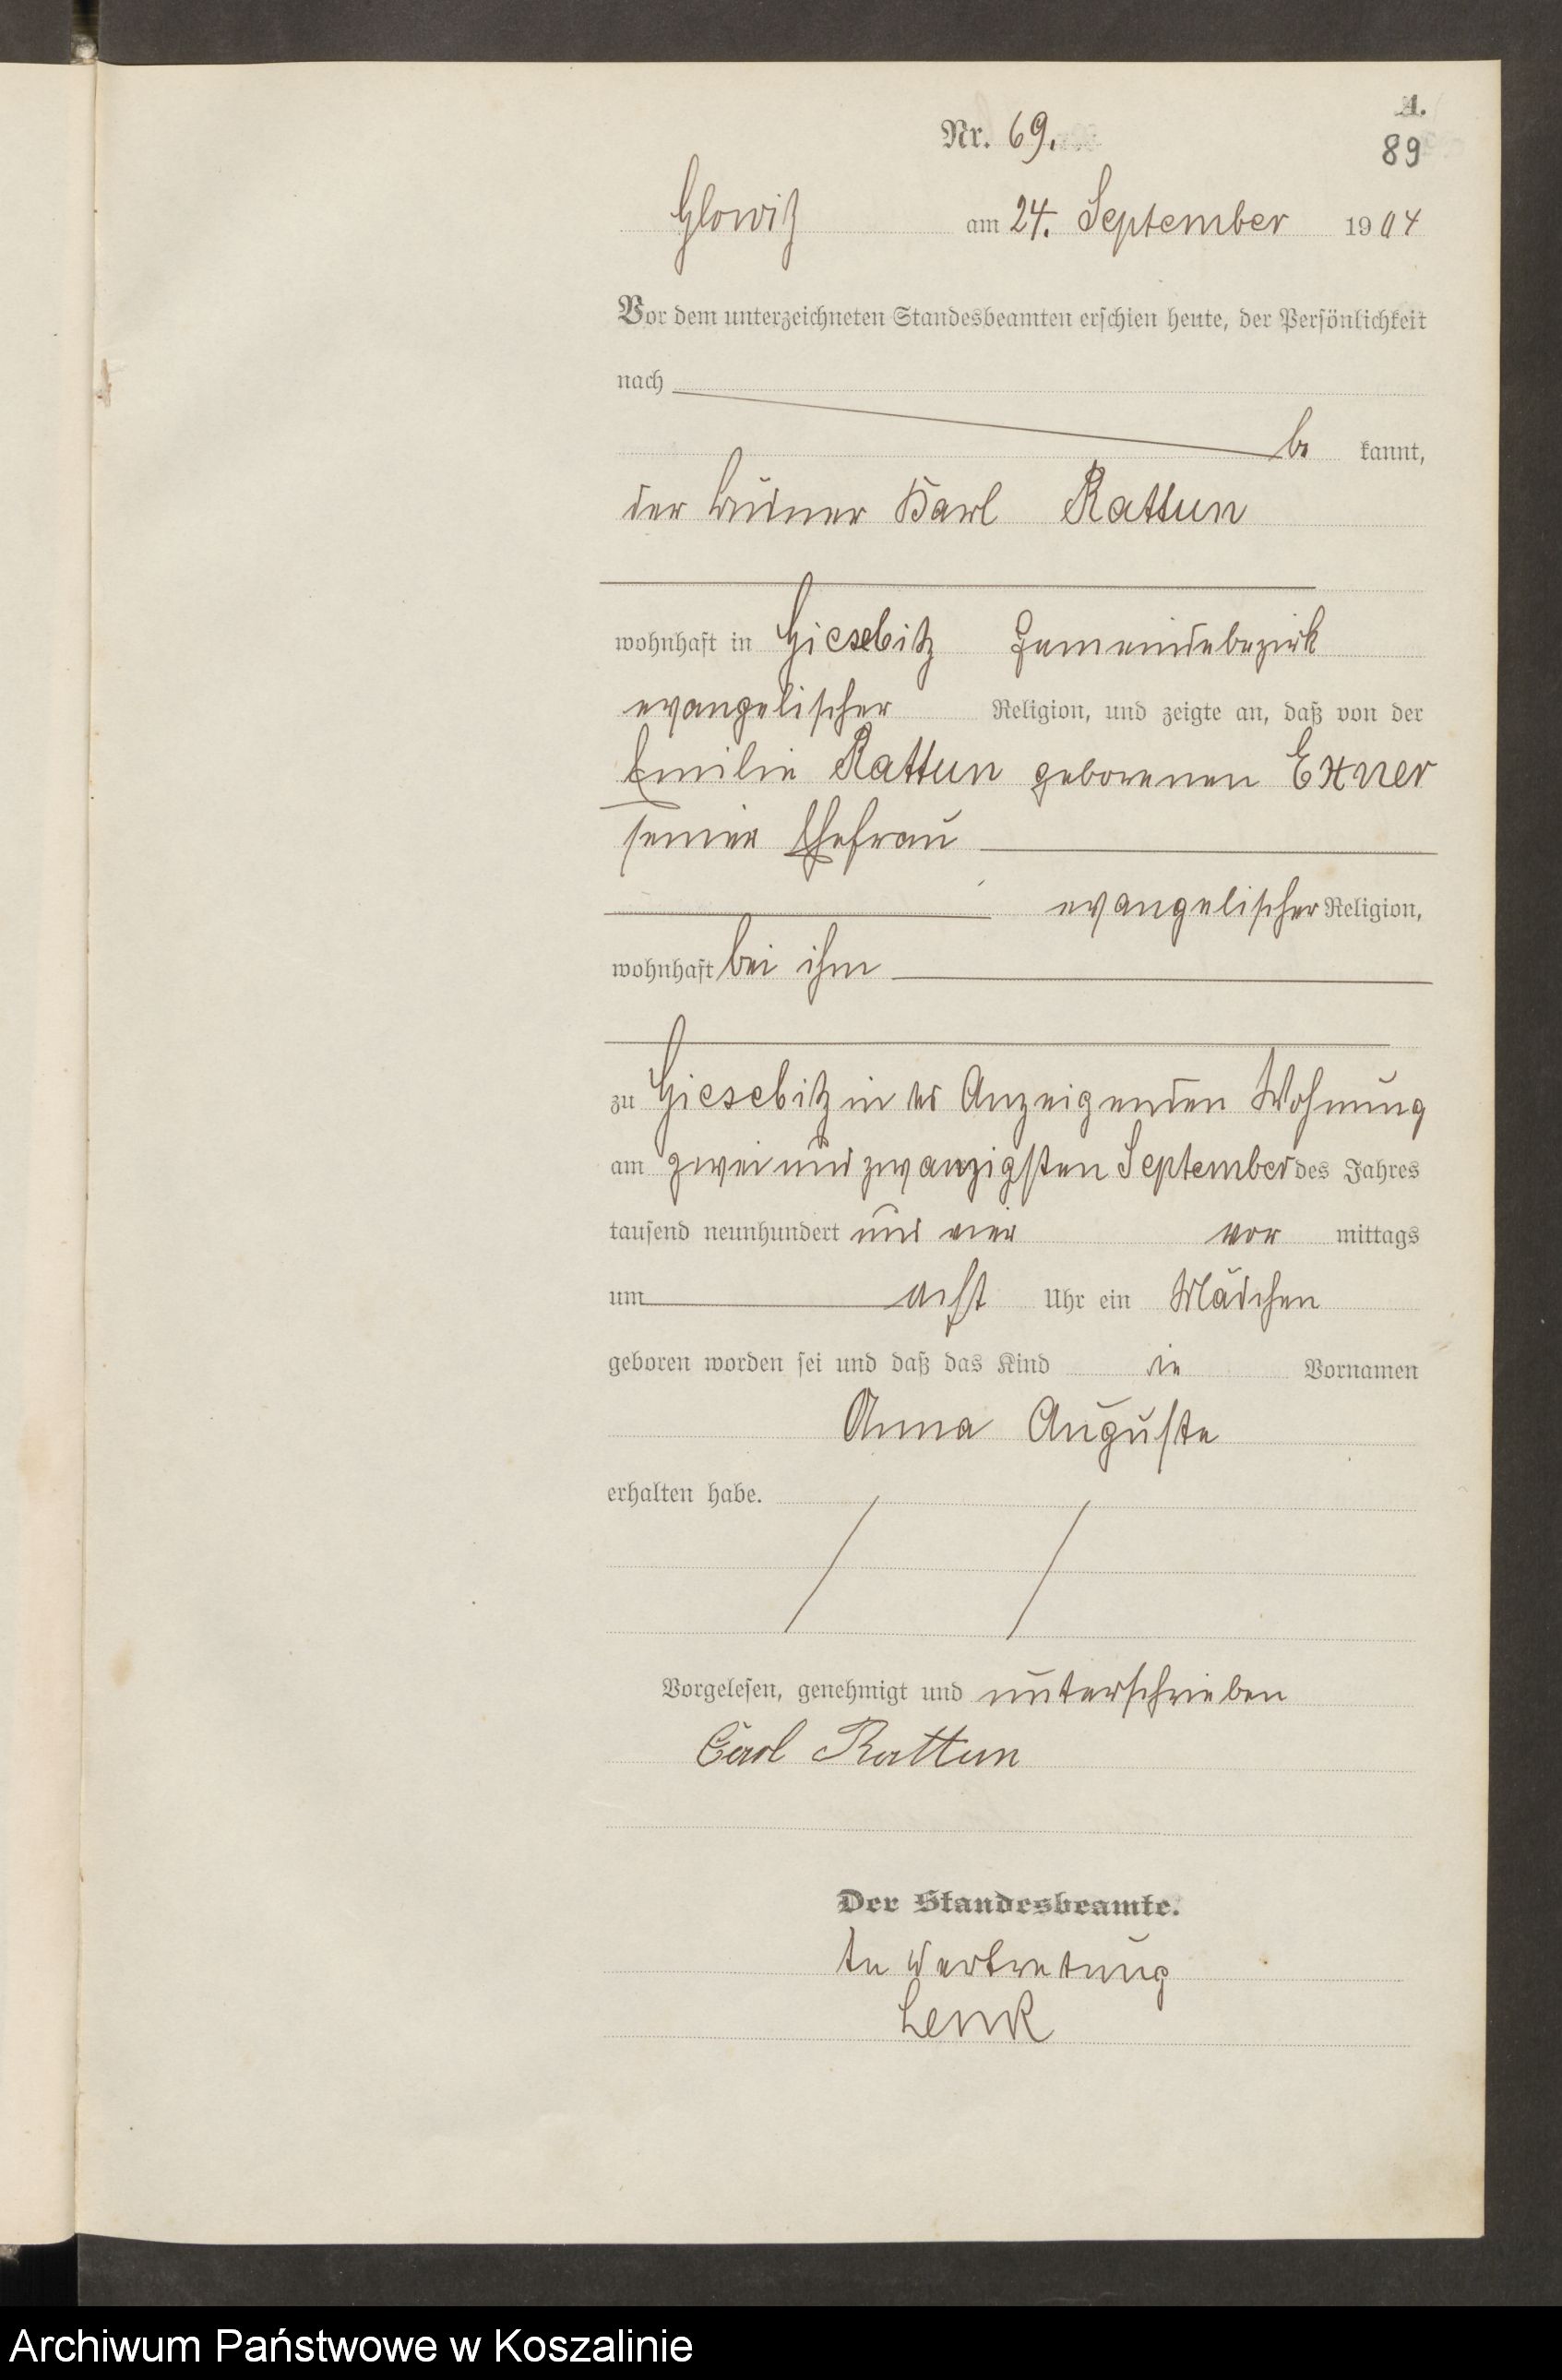 A.
Nr. 69.
89
Glowitz am 24. September 1904
Vor dem unterzeichneten Standesbeamten erschien heute, der Persönlichkeit
nach
be kannt,
der Büdner Karl Rattun
wohnhaft in Giesebitz Gemeindebezirk
evangelischer Religion, und zeigte an, daß von der
Emilie Rattun geborenen Exner
seiner Ehefrau
evangelischer Religion,
wohnhaft bei ihm
zu Giesebitz in des Anzeigenden Wohnung
am zwei und zwanzigsten September des Jahres
tausend neunhundert und vier vor mittags
um acht Uhr ein Mädchen
geboren worden sei und daß das Kind die Vornamen
Anna Auguste
erhalten habe.
Vorgelesen, genehmigt und unterschrieben
Carl Rattun
Der Standesbeamte.
In Vertretung
Lenk
Archiwum Państwowe w Koszalinie